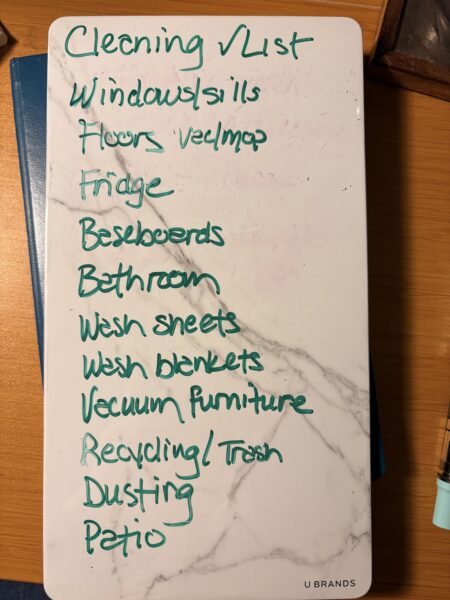 Cleaning √List
Windows/sills
Floors vac/mop
Fridge
Baseboards
Bathroom
Wash sheets
Wash blankets
Vacuum furniture
Recycling/Trash
Dusting
Patio
U BRANDS